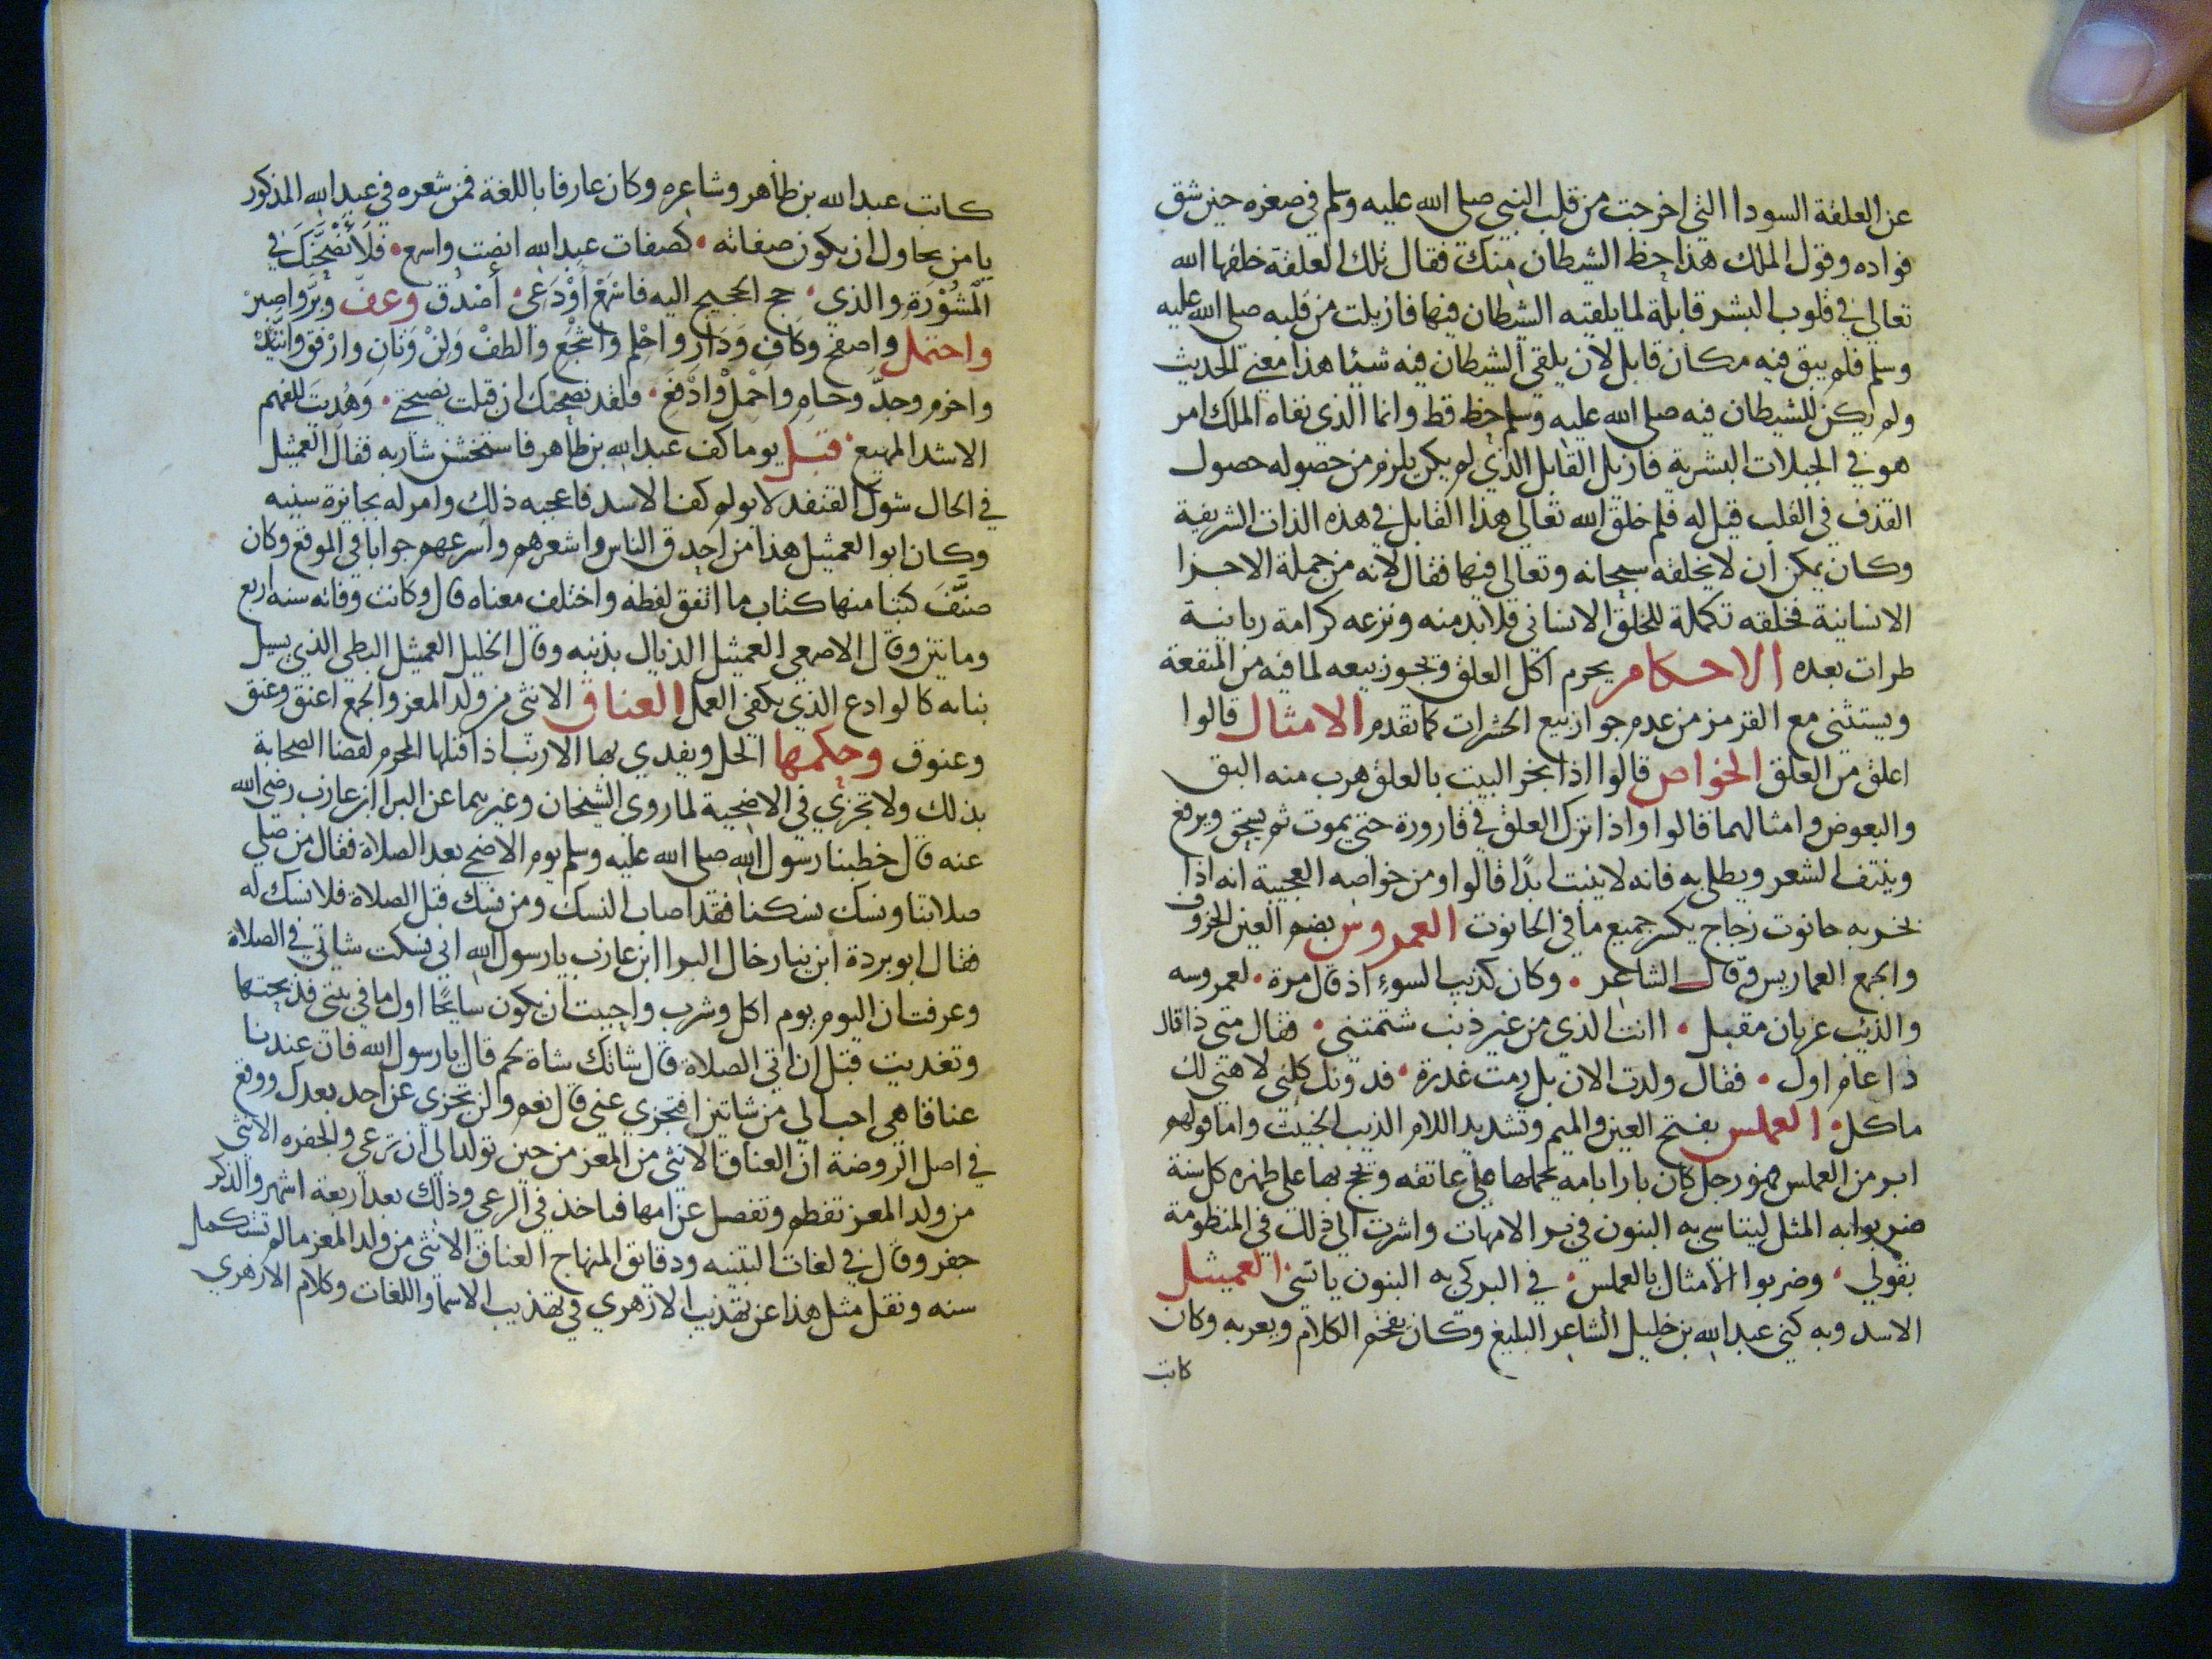 عن العلقة السودا التي اخرجت من قلب النبي صلى الله عليه وسلم في صغره حين شق
فواده وقول الملك هذا حظ الشيطان منك فقال تلك العلقة خلقها الله
تعالى في قلوب البشر قابلة لما يلقيه الشيطان فيها فازيلت من قلبه صلى الله عليه
وسلم فلم يبق فيه مكان قابل لان يلقي الشيطان فيه شيئا هذا معنى الحديث
ولم يكن للشيطان فيه صلى الله عليه وسلم حظ قط وانما الذي نفاه الملك امر
هو في الجبلات البشرية فازيل القابل الذي لم يكن يلزم من حصوله حصول
القذف في القلب قيل له فلم خلق الله تعالى هذا القابل في هذه الذات الشريفة
وكان يمكن ان لا يخلقه سبحانه وتعالى فيها فقال لانه من جملة الاجزا
الانسانية فخلقه تكملة للخلق الانساني فلابد منه ونزعه كرامة ربانية
طرات بعده الاحكام يحرم اكل العلق ويجوز بيعه لما فيه من المنفعة
ويستثنى مع القرمز من عدم جواز بيع الحشرات كما تقدم الامثال قالوا
اعلق من العلق الخواص قالوا اذا بخر البيت بالعلق هرب منه البق
والبعوض وامثالهما قالوا واذا ترك العلق في قارورة حتى يموت ثم يسحق ويرفع
وينتف الشعر ويطلى به فانه لا ينبت ابدًا قالوا ومن خواصه العجيبة انه اذا
بخر به حانوت زجاج يكسر جميع ما في الحانوت العمروس بضم العين الخروف
والجمع العماريس قال الشاعر • وكان كذيب السوءِ اذ قال مرة • لعمروسه
والذيب غرثان مقبل • اانت الذي من غير ذنب شتمتني • فقال متى ذا قال
ذا عام اول • فقال ولدت الان بل رمت غدرة • فدونك كلني لا هنى لك
ماكل • العملس بفتح العين والميم وتشديد اللام الذيب الخبيث واما قولهم
ابر من العملس فهو رجل كان بارا بامه يحملها على عاتقه ويحج بها على ظهره كل سنة
ضربوا به المثل ليتاسى به البنون في بر الامهات واشرت الى ذلك في المنظومة
بقولي • وضربوا الامثال بالعملس • في البر كي به البنون ياتسي • العميثل
الاسد وبه كني عبد الله بن خليل الشاعر البليغ وكان يفخم الكلام ويعربه وكان
كاتب
كاتب عبد الله بن طاهر وشاعره وكان عارفا باللغة فمن شعره في عبد الله المذكور
يا من يحاول ان يكون صفاته • كصفات عبد الله انصت واسمع • فلأنصحنك في
المشورة والذي • حج الحجيج اليه فاسمع او دع • أصدق وعف وبر واصبر
واحتمل واصفح وكاف ودار واحلم واشجع والطف ولن وتان وارفق واتئد
واحزم وجد وحام واحمل وادفع • ولقد نصحتك ان قبلت نصيحتي • وهديت للنهج
الاسد المهيع • قبل يوما كف عبد الله بن طاهر فاستخشن شاربه فقال العميثل
في الحال شوك القنفد لا يولم كف الاسد فاعجبه ذلك وامر له بجايزة سنيه
وكان ابو العميثل هذا من احدق الناس واشعرهم واسرعهم جوابا في الموقع وكان
صنَّفَ كتبا منها كتاب ما اتفق لفظه واختلف معناه قال وكانت وفاته سنه اربع
ومايتين وقال الاصمعي العميثل الذيال بذنبه وقال الخليل العميثل البطي الذي يسبل
ثيابه كالوادع الذي يكفي العمل العناق الانثى من ولد المعز والجمع اعنق وعنق
وعنوق وحكمها الحل ويفدي بها الارنب اذا قتلها المحرم لقضا الصحابة
بذلك ولا تجزي في الاضحية لما روى الشيخان وغيرهما عن البرا ابن عازب رضي الله
عنه قال خطبنا رسول الله صلى الله عليه وسلم يوم الاضحى بعد الصلاة فقال من صلى
صلاتنا ونسك نسكنا فقد اصاب النسك ومن نسك قبل الصلاة فلا نسك له
فقال ابو بردة ابن نيار خال البرا ابن عازب يا رسول الله اني نسكت شاتي في الصلاة
وعرفت ان اليوم يوم اكل وشرب واحببت ان يكون اول ما في بيتي فذبحتها
وتغديت قبل ان اتي الصلاة قال شاتك شاة لحم قال يا رسول الله فان عندنا
عناقا هي احب الي من شاتين افتجزي عني قال نعم ولن تجزي عن احد بعدك ووقع
في اصل الروضة ان العناق الانثى من المعز من حين تولد الى ان ترعى والجفره الانثى
من ولد المعز تفطم وتفصل عن امها فتاخذ في الرعي وذلك بعد اربعة اشهر والذكر
جفر وقال في لغات التنبيه ودقايق المنهاج العناق الانثى من ولد المعز ما لم تستكمل
سنه ونقل مثل هذا عن تهذيب الازهري في تهذيب الاسما واللغات وكلام الازهري